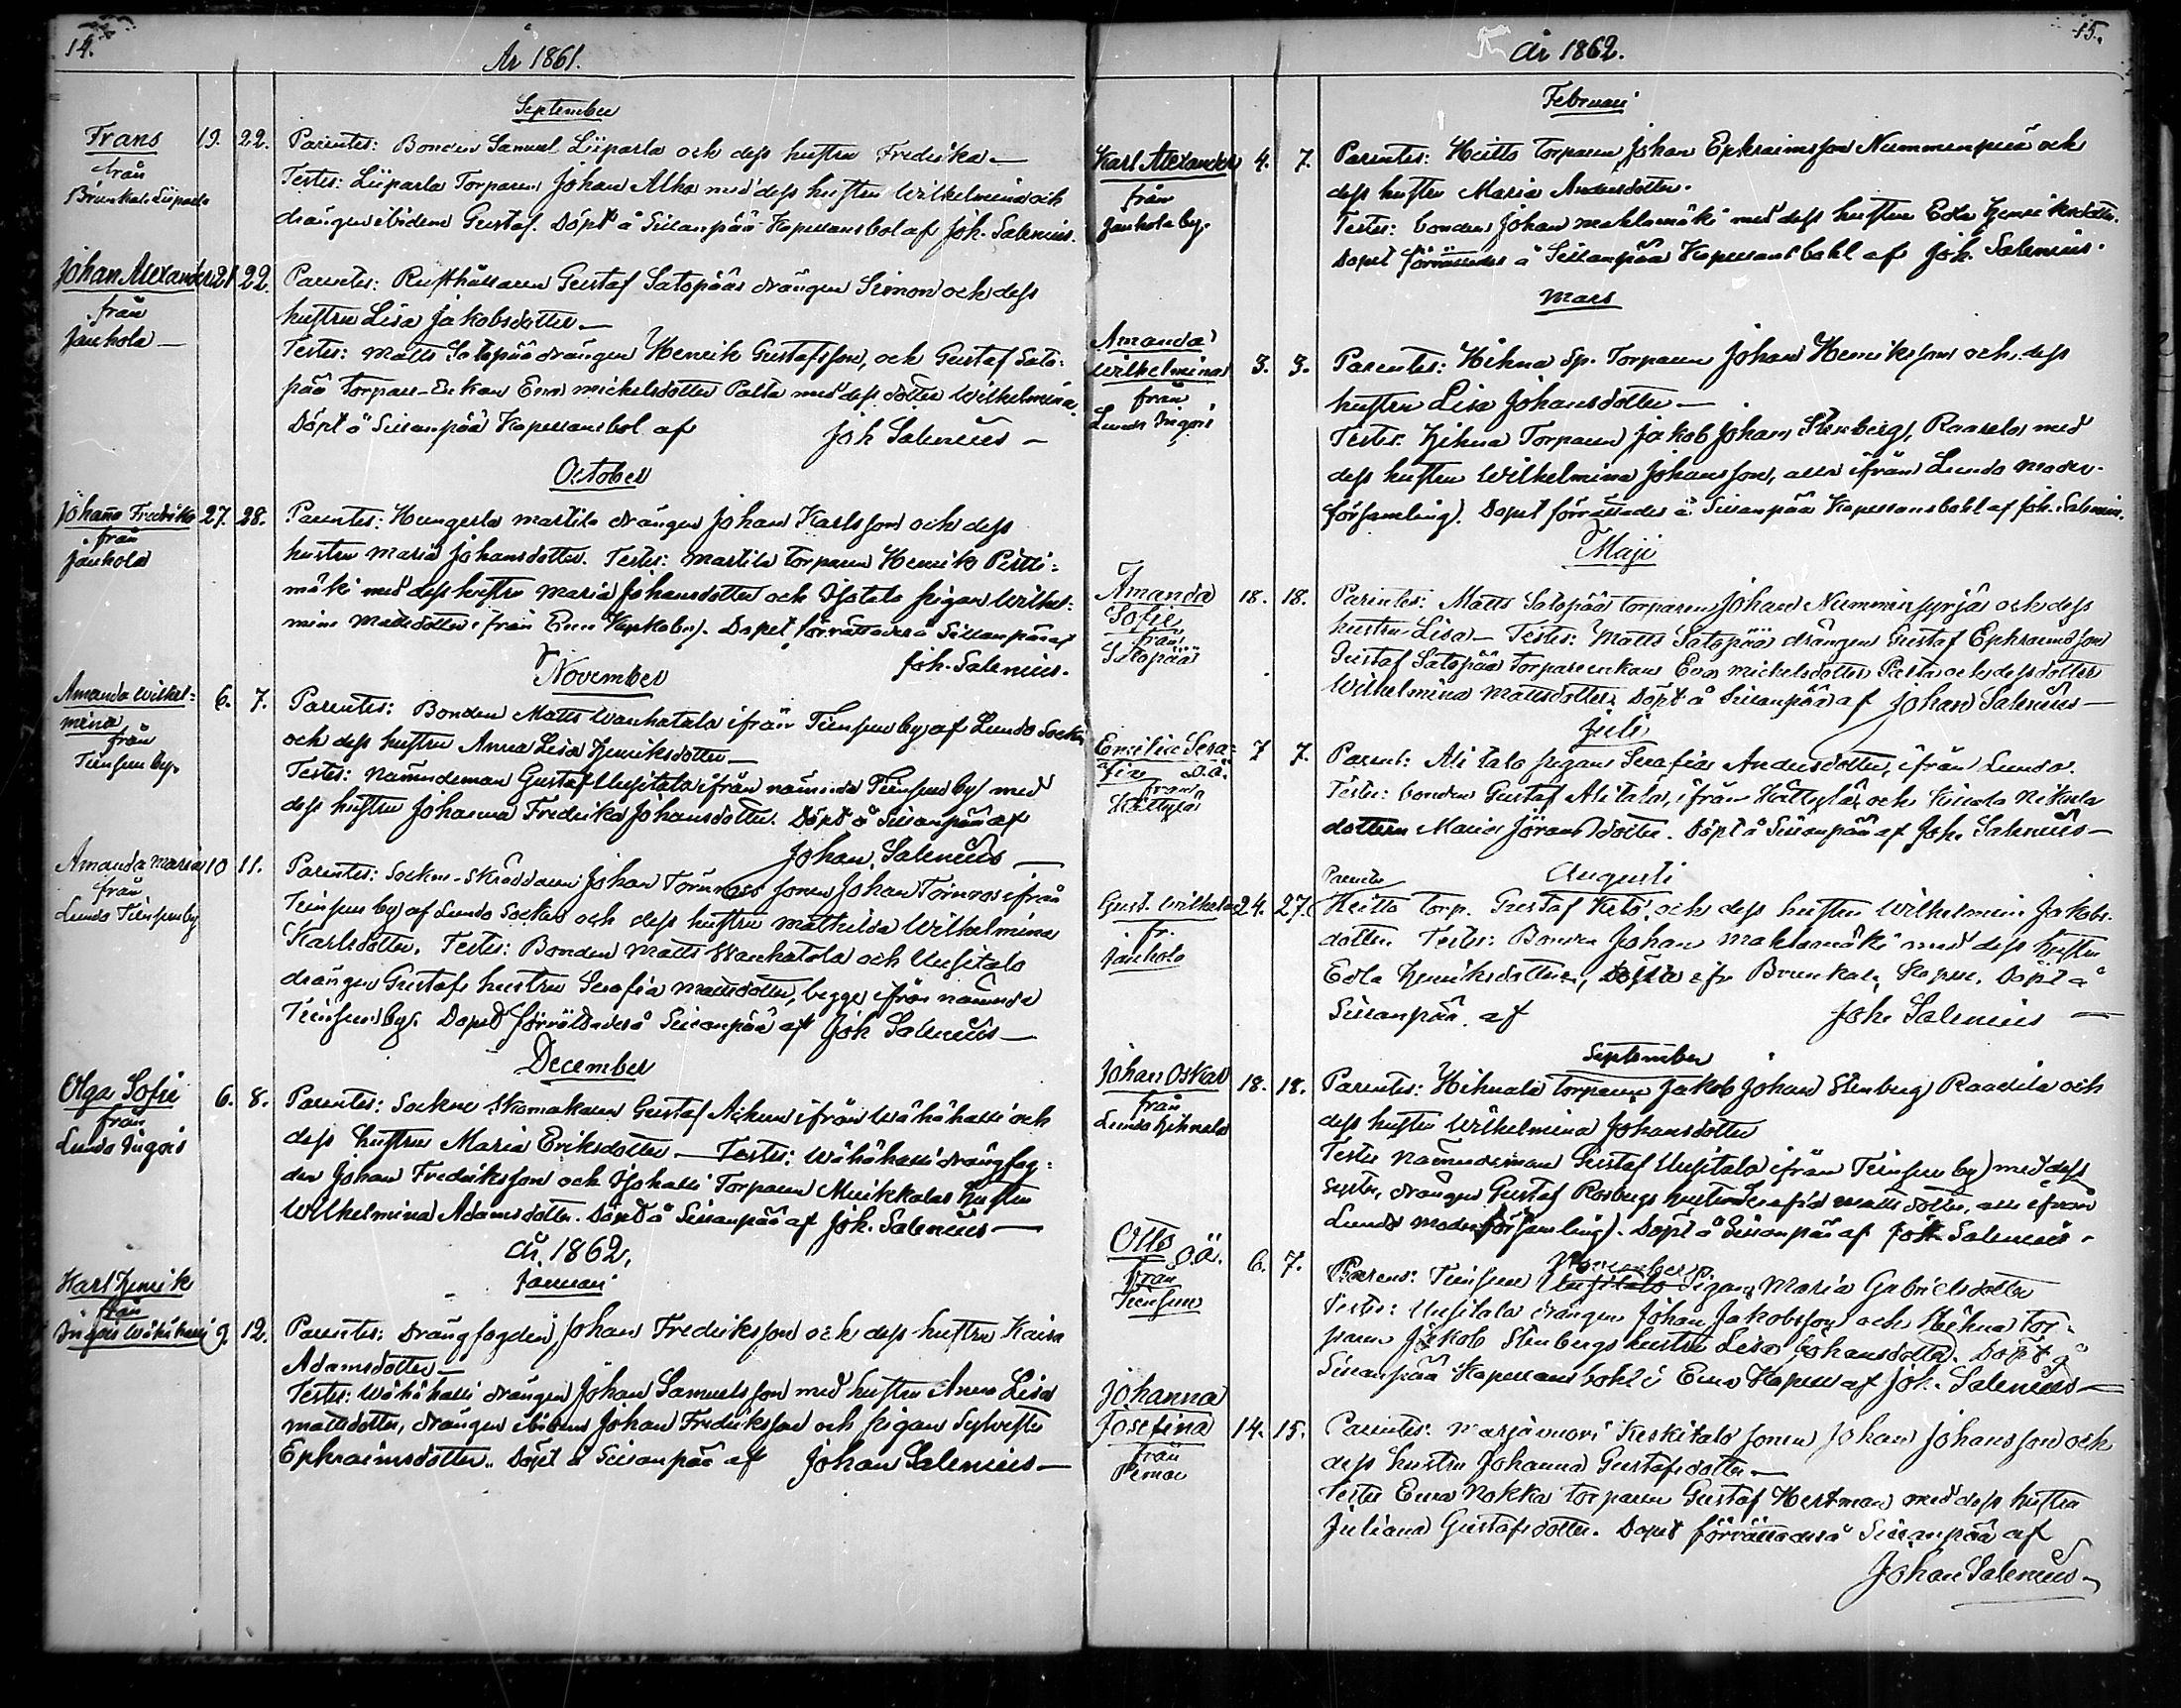 14.
År 1861.
September
Frans 19. 22. Parentes: Bonden Samuel Liiparla och dess hustru Fredrika —
från Testes: Liiparla Torparen Johan Alho med dess hustru Wilhelmina och
Brunkala Liiparla drängen ibidem Gustaf. Döpt å Sillanpää Kapellansbol af Joh. Salenius.
Johan Alexander 21 22. Parentes: Rusthållaren Gustaf Satopääs drängen Simon och dess
från hustru Lisa Jakobsdotter —
Jauhola — Testes: Matts Satopää drängen Henrik Gustafsson, och Gustaf Sato-
pää Torpare-Enkan Eva Michelsdotter Palta med dess dotter Wilhelmina.
Döpt å Sillanpää Kapellansbol af Joh Salenius —
October
Johana Fredrika 27. 28. Parentes: Hungerla Martila drängen Johan Karlsson och dess
från hustru Maria Johansdotter. Testes: Martila torparen Henrik Pertti-
Jauhola mäki med dess hustru Maria Johansdotter och Isotalo pigan Wilhel-
mina Mattsdotter ifrån Kapkobn). Dopet förrättades å Sillanpää af
Joh. Salenius.
November
Amanda Wilhel- 6. 7. Parentes: Bonden Matts Wanhatalo ifrån Tiensuu by af Lundo Socken
mina och dess hustru Anna Lisa Henriksdotter —
från Testes: Nämndeman Gustaf Uusitalo ifrån nämnda Tiensuu by med
Tiensuu by. dess hustru Johanna Fredrika Johansdotter. Döpt å Sillanpää af
Johan Salenius —
Amanda Maria 10 11. Parentes: Sockne-Skräddaren Johan Törnroos sonen Johan Törnros ifrån
från Tiensuu by af Lundo Socken och dess hustru Mathilda Wilhelmina
Lundo Tiensuu by Karlsdotter. Testes: Bonden Matts Wanhatalo och Uusitalo
drängen Gustafs hustru Serafia Mattsdotter, begge ifrån nämnda
Tiensuu by. Dopet förrättades å Sillanpää af Joh Salenius —
December
Olga Sofie 6. 8. Parentes: Sockne Skomakaren Gustaf Achren ifrån Wähähalli och
från dess hustru Maria Eriksdotter — Testes: Wähähalli drängfog-
Lundo Ingois den Johan Fredriksson och Isohalli Torparen Muikkalas hustru
Wilhelmina Adamsdotter. Döpt å Sillanpää af Joh. Salenius —
År 1862.
Januari
Karl Henrik
från
Ingois Wähähalli 9. 12. Parentes: Drängfogden Johan Fredriksson och dess hustru Kaisa
Adamsdotter —
Testes: Wähähalli drängen Johan Samuelsson med hustru Anna Lisa
Mattsdotter, drängen ibidem Johan Fredriksson och pigan Sylvesta
Ephraimsdotter. Döpt å Sillanpää af Johan Salenius —
15.
År 1862.
Februari
Karl Alexander 4. 7. Parentes: Heitto torparen Johan Ephraimsson Nummenpää och
från dess hustru Maria Andersdotter.
Jauhola by. Testes: bonden Johan Mahlamäki med dess hustru Edla Henriksdotter.
Dopet förrättades å Sillanpää Kapellansbohl af Joh. Salenius.
Mars
Amanda
Wilhelmina 3. 3. Parentes: Hihna Sp. Torparen Johan Henriksson och dess
från hustru Lisa Johansdotter —
Lundo Ingois Testes: Hihna Torparen Jakob Johan Stenberg, med
dess hustru Wilhelmina Johansson, alla ifrån Lundo moder-
församling. Dopet förrättades å Sillanpää Kapellansbohl af Joh. Salenius.
Maji
Amanda 18. 18. Parentes: Matts Satopää torparen Johan Nummisyrjä och dess
Sofie hustru Lisa — Testes: Matts Satopää drängen Gustaf Ephraimsson
från Gustaf Satopää torpareenkan Eva Michelsdotter Palta och dess dotter
Satopää Wilhelmina Mattsdotter. Döpt å Sillanpää af Johan Salenius —
Juli
Emilia Sera- 7 7. Parens: Ali talo pigan Serafia Andersdotter, ifrån Lundo.
fia o.ä. Testes: bonden Gustaf Alitalo, ifrån Hättylä, och Nikula
från dottern Maria Göransdotter. Döpt å Sillanpää af Joh. Salenius —
Hättylä
Augusti
Parentes
Gust. Wilhelm 24. 27. Heitto torp. Gustaf Keto, och dess hustru Wilhelmina Jakobs-
fr. dotter. Testes: Bonden Johan Mahlamäki med dess hustru
Jauhola Edla Henriksdotter, ifr Brunkala Kapell. Döpt å
Sillanpää af Joh. Salenius —
September
Johan Oskar 18. 18. Parentes: Hihnala torparen Jakob Johan Stenberg och
från dess hustru Wilhelmina Johansdotter
Lundo Hihnala Testes Nämndeman Gustaf Uusitalo ifrån Tiensuu by med dess
syster, drängen Gustaf Rosbergs hustru Serafia Mattsdotter, alla ifrån
Lundo moderförsamling. Döpt å Sillanpää af Joh. Salenius.
November
Otto o.ä. 6. 7. Parens: Tiensuu Uusitalo Pigan Maria Gabrielsdotter
från Testes: Uusitalo drängen Johan Jakobsson och Hihna tor-
Tiensuu paren Jakob Stenbergs hustru Lisa Johansdotter. Döpt å
Sillanpää Kapellansbohl i Kapell af Joh. Salenius —
Johanna
Josefina 14. 15. Parentes: Marjavuori Keskitalo sonen Johan Johansson och
från dess hustru Johanna Gustafsdotter —
Pemar Testes Nokka torparen Gustaf Hertman med dess hustru
Juliana Gustafsdotter. Dopet förrättades å Sillanpää af
Johan Salenius —